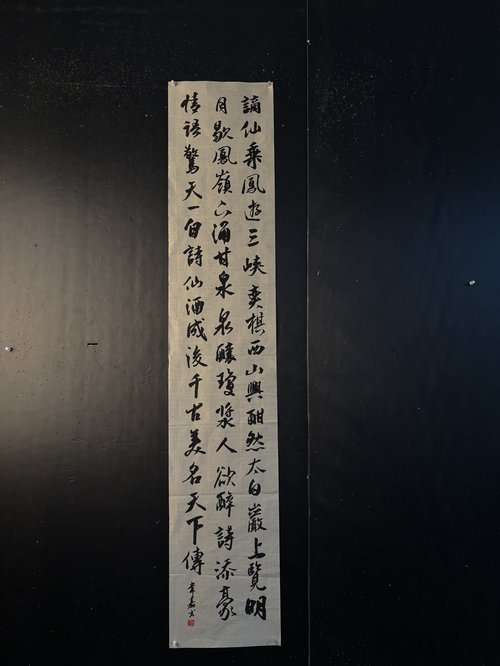 謫仙乘鳳遊三峽奕棋西山興酣然太白巖上覽明
月歇鳳嶺下涌甘泉泉釀瓊漿人欲醉詩添豪
情語驚天一自詩仙酒成後千古美名天下傳